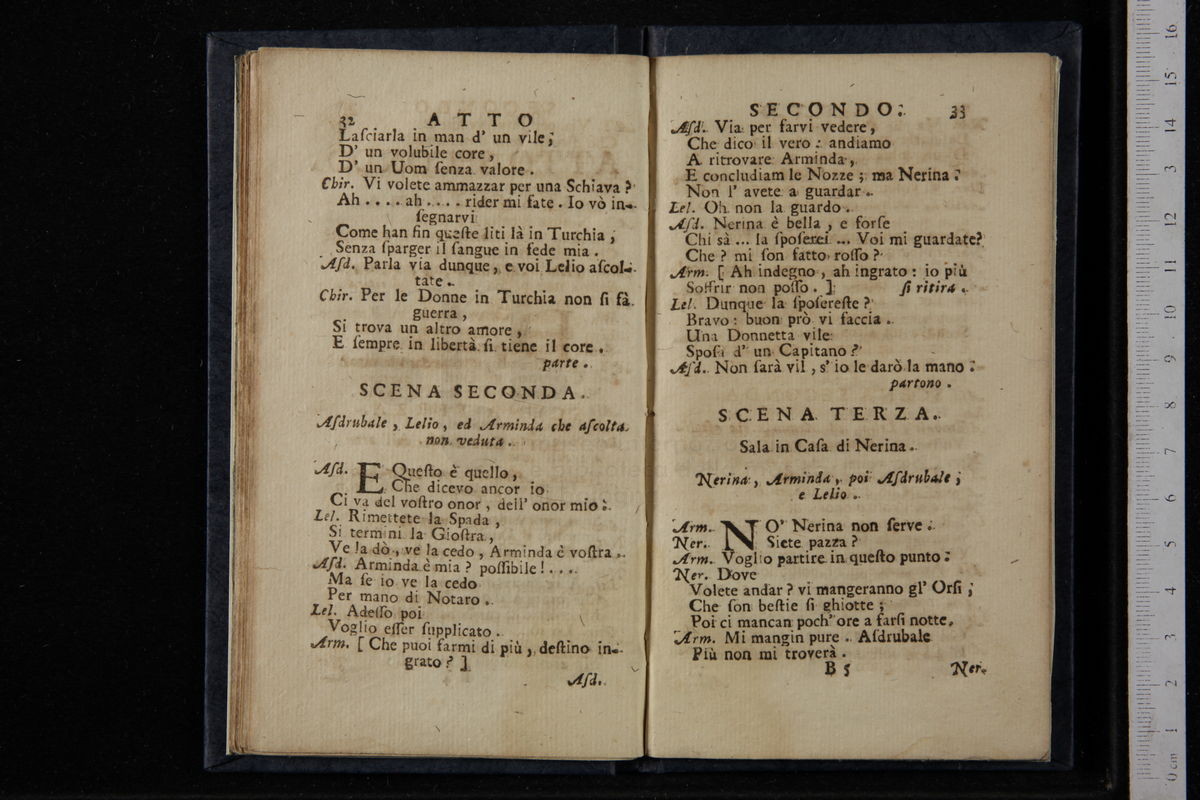 32 ATTO
Laſciarla in man d' un vile;
D' un volubile core,
D' un Uom ſenza valore.
Chir. Vi volete ammazzar per una Schiava?
Ah .... ah .... rider mi fate. Io vò in-
ſegnarvi
Come han fin queſte liti là in Turchia;
Senza ſparger il ſangue in fede mia.
Aſd. Parla via dunque, e voi Lelio aſcol-
tate.
Chir. Per le Donne in Turchia non ſi fà
guerra,
Si trova un altro amore,
E ſempre in libertà ſi tiene il core.
parte.
SCENA SECONDA.
Aſdrubale, Lelio, ed Arminda che aſcolta
non veduta.
Aſd. E Queſto è quello,
Che dicevo ancor io
Ci va del voſtro onor, dell' onor mio:
Lel. Rimettete la Spada,
Si termini la Gioſtra,
Ve la dò, ve la cedo, Arminda è voſtra.
Aſd. Arminda è mia? poſſibile!....
Ma ſe io ve la cedo
Per mano di Notaro.
Lel. Adeſſo poi
Voglio eſſer ſupplicato.
Arm. [ Che puoi farmi di più, deſtino in-
grato? ]
Aſd.
SECONDO. 33
Aſd. Via per farvi vedere,
Che dico il vero: andiamo
A ritrovare Arminda,
E concludiam le Nozze; ma Nerina?
Non l' avete a guardar.
Lel. Oh non la guardo.
Aſd. Nerina è bella, e forſe
Chi sà ... la ſpoſerei ... Voi mi guardate?
Che? mi ſon fatto roſſo?
Arm. [ Ah indegno, ah ingrato: io più
Soffrir non poſſo. ] ſi ritira.
Lel. Dunque la ſpoſereſte?
Bravo: buon prò vi faccia.
Una Donnetta vile
Spoſa d' un Capitano?
Aſd. Non ſarà vil, s' io le darò la mano:
partono.
SCENA TERZA.
Sala in Caſa di Nerina.
Nerina, Arminda, poi Aſdrubale;
e Lelio.
Arm. NO' Nerina non ſerve.
Ner. Siete pazza?
Arm. Voglio partire in queſto punto:
Ner. Dove
Volete andar? vi mangeranno gl' Orſi;
Che ſon beſtie ſi ghiotte;
Poi ci mancan poch' ore a farſi notte.
Arm. Mi mangin pure. Aſdrubale
Più non mi troverà.
B 5 Ner.
16
15
14
13
12
11
10
9
8
7
6
5
4
3
2
1
0 cm